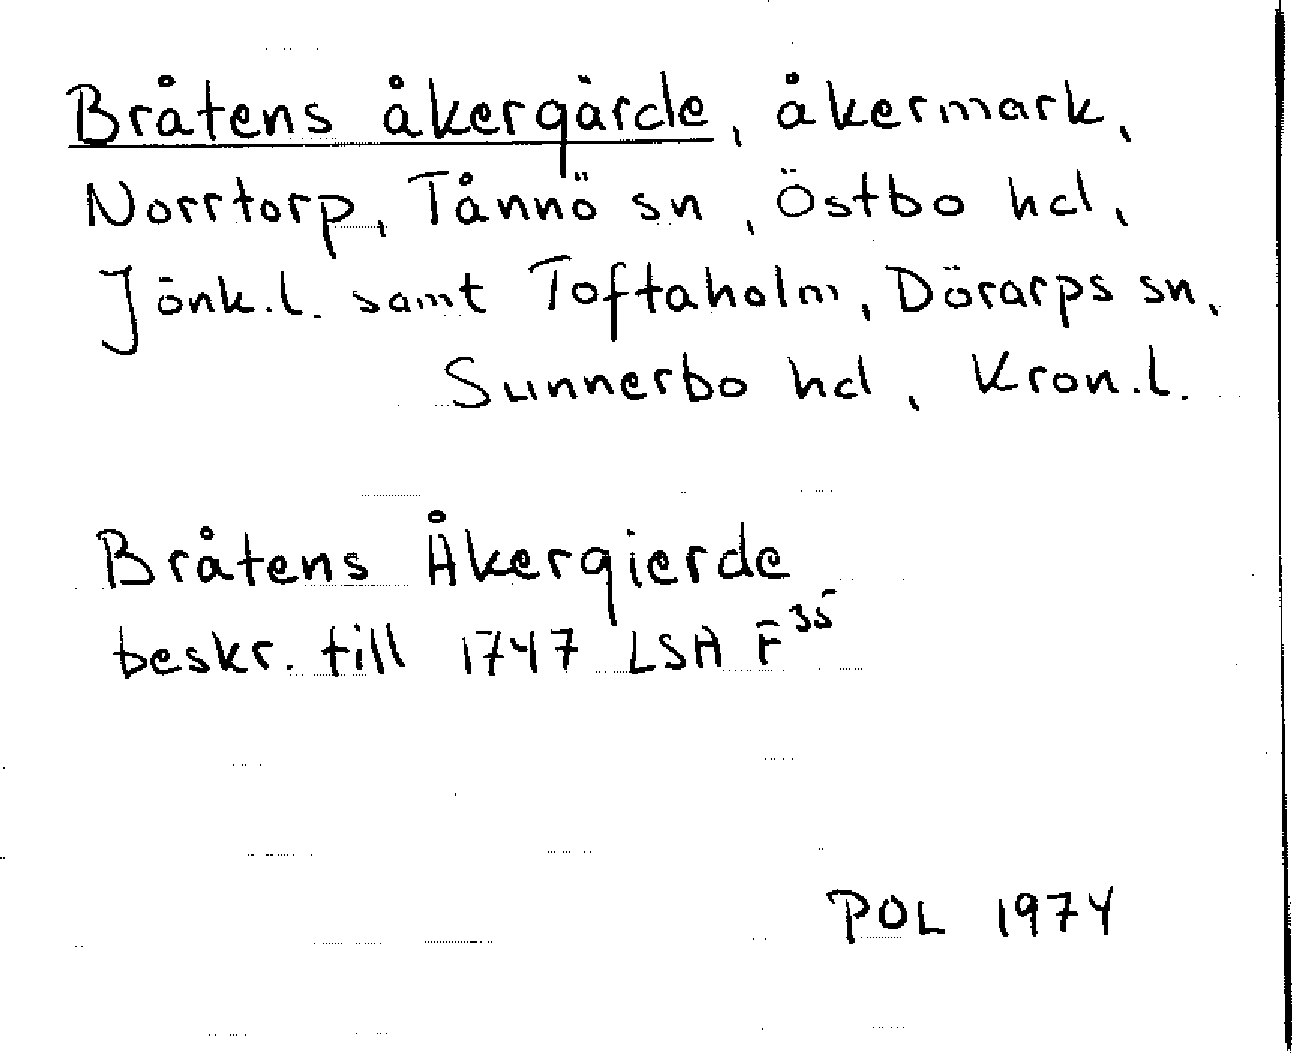 Bråtens åkergärde, åkermark,
Norrtorp, Tånnö sn, Östbo hd,
Jönk.l. samt Toftaholm, Dörarps sn,
Sunnerbo hd, Kron.l.
Bråtens Åkergierde
beskr. till 1747 LSA F³⁵
POL 1974